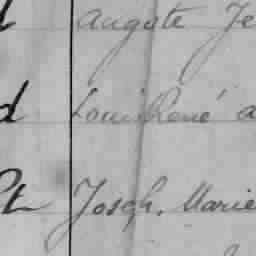 d Auguste Je
d Louis René a
et Joseph, Marie